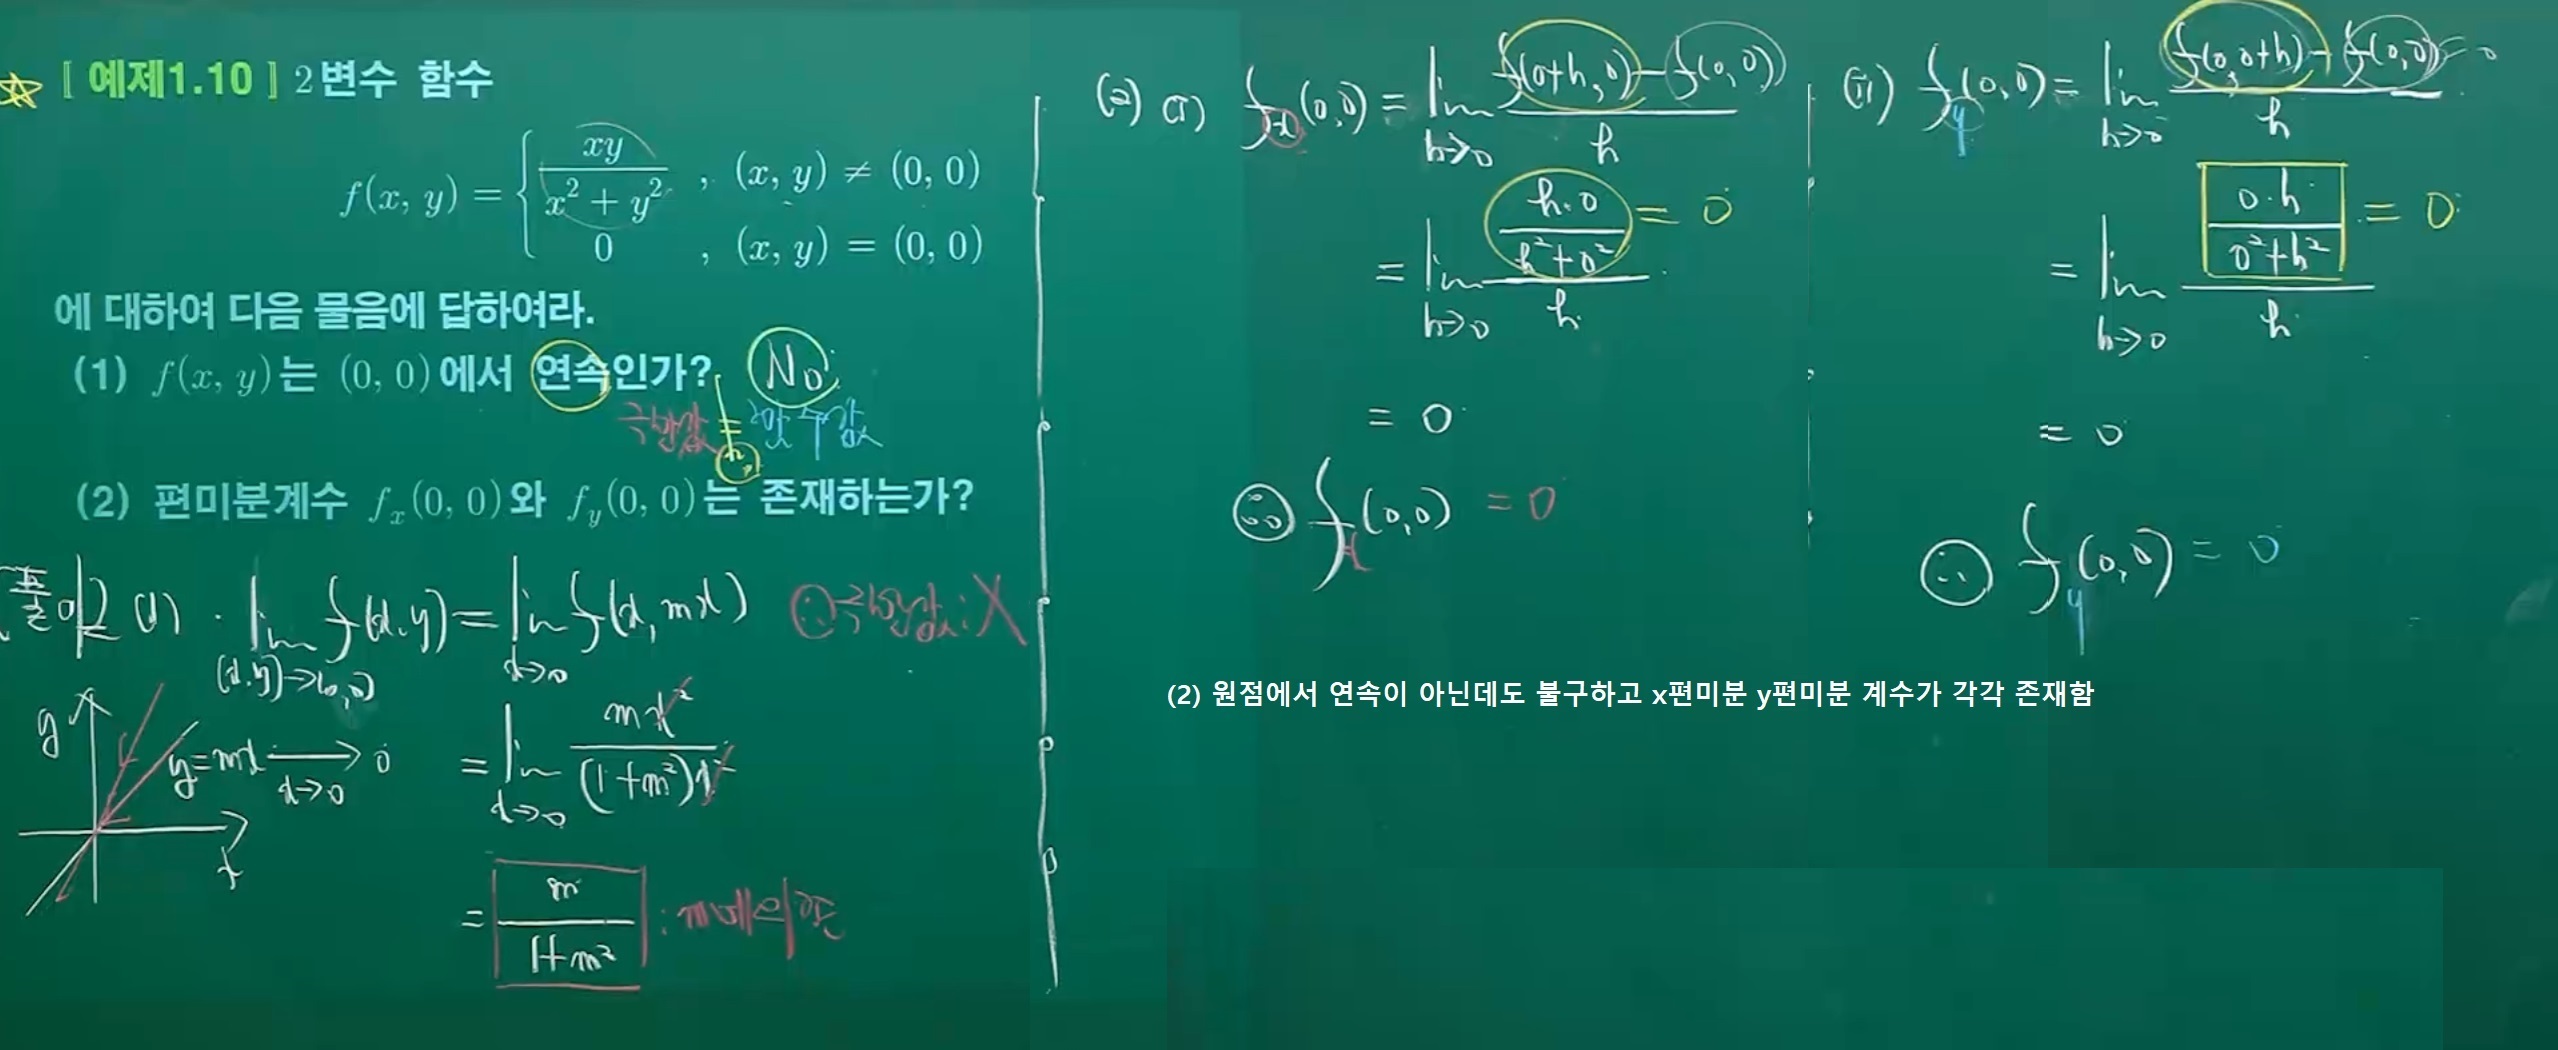 [ 예제1.10 ] 2변수 함수
f(x, y) = { xy / (x² + y²) , (x, y) ≠ (0, 0)
0 , (x, y) = (0, 0)
에 대하여 다음 물음에 답하여라.
(1) f(x, y)는 (0, 0)에서 연속인가? No
극한값 = 함수값
(2) 편미분계수 f_x(0, 0)와 f_y(0, 0)는 존재하는가?
풀이 (1) · lim_{(x,y)→(0,0)} f(x,y) = lim_{x→0} f(x, mx) ∴ 극한값: X
y
y=mx → 0
x→0
x
= lim_{x→0} mx² / (1+m²)x²
= m / 1+m² : m에 의존
(2) (i) f_x(0,0) = lim_{h→0} f(0+h, 0) - f(0,0) / h
= lim_{h→0} (h·0 / h²+0²) / h = 0
= 0
∴ f_x(0,0) = 0
(ii) f_y(0,0) = lim_{h→0} f(0,0+h) - f(0,0) / h = 0
= lim_{h→0} (0·h / 0²+h²) / h = 0
= 0
∴ f_y(0,0) = 0
(2) 원점에서 연속이 아닌데도 불구하고 x편미분 y편미분 계수가 각각 존재함